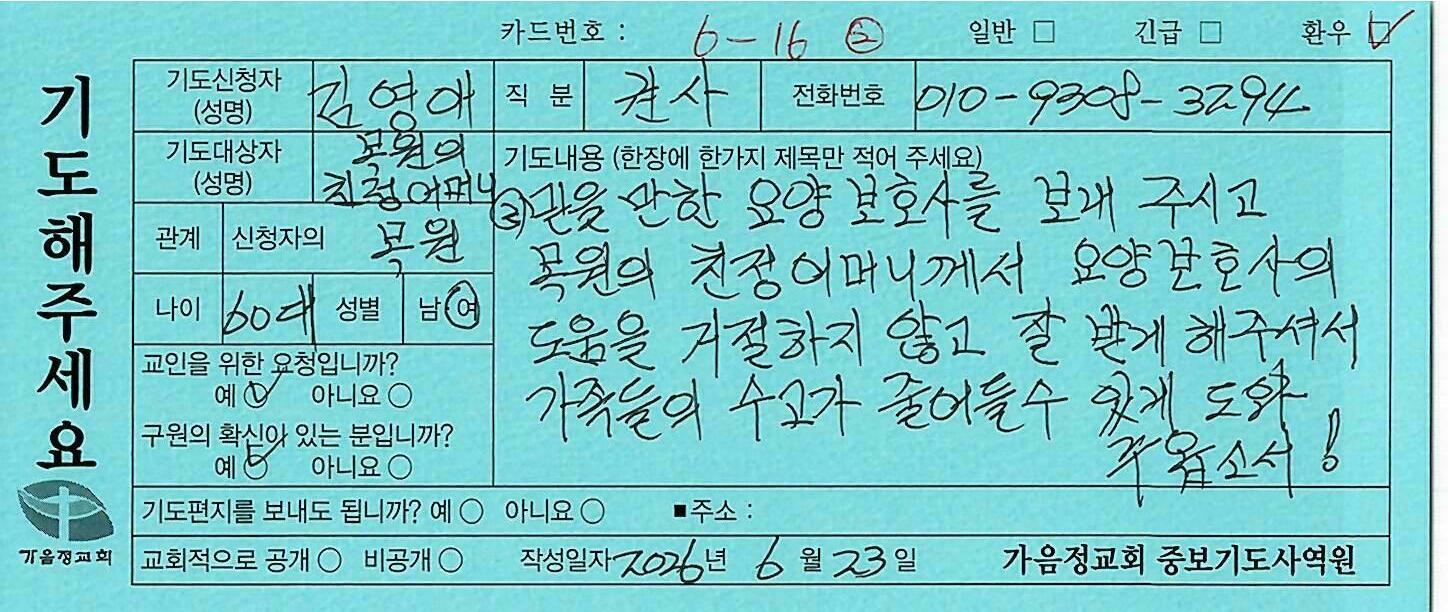 카드번호 : 6-16 ② 일반 □ 긴급 □ 환우 ☑
기도해주세요
기도신청자 (성명) 김영애 직분 권사 전화번호 010-9308-3294
기도대상자 (성명) 목원의 친정어머니
관계 신청자의 목원
나이 60대 성별 남 여
교인을 위한 요청입니까?
예 ○ 아니요 ○
구원의 확신이 있는 분입니까?
예 ○ 아니요 ○
기도내용 (한장에 한가지 제목만 적어 주세요)
믿을 만한 요양보호사를 보내 주시고
목원의 친정어머니께서 요양보호사의
도움을 거절하지 않고 잘 받게 해주셔서
가족들의 수고가 줄어들수 있게 도와
주옵소서!
기도편지를 보내도 됩니까? 예 ○ 아니요 ○ ■주소 :
교회적으로 공개 ○ 비공개 ○ 작성일자 2026년 6월 23일 가음정교회 중보기도사역원
가음정교회